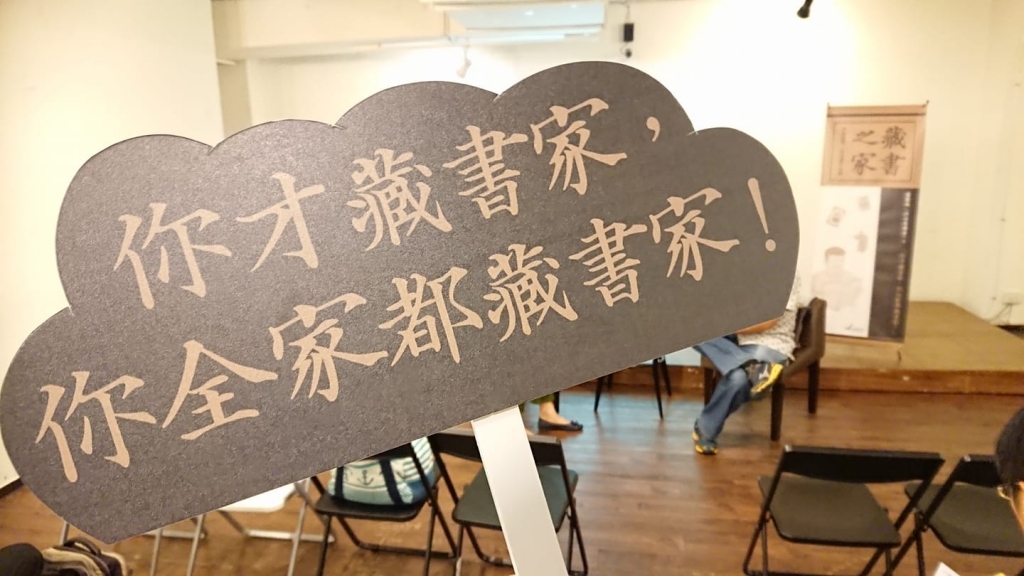 你才藏書家,
你全家都藏書家!
藏書
之家